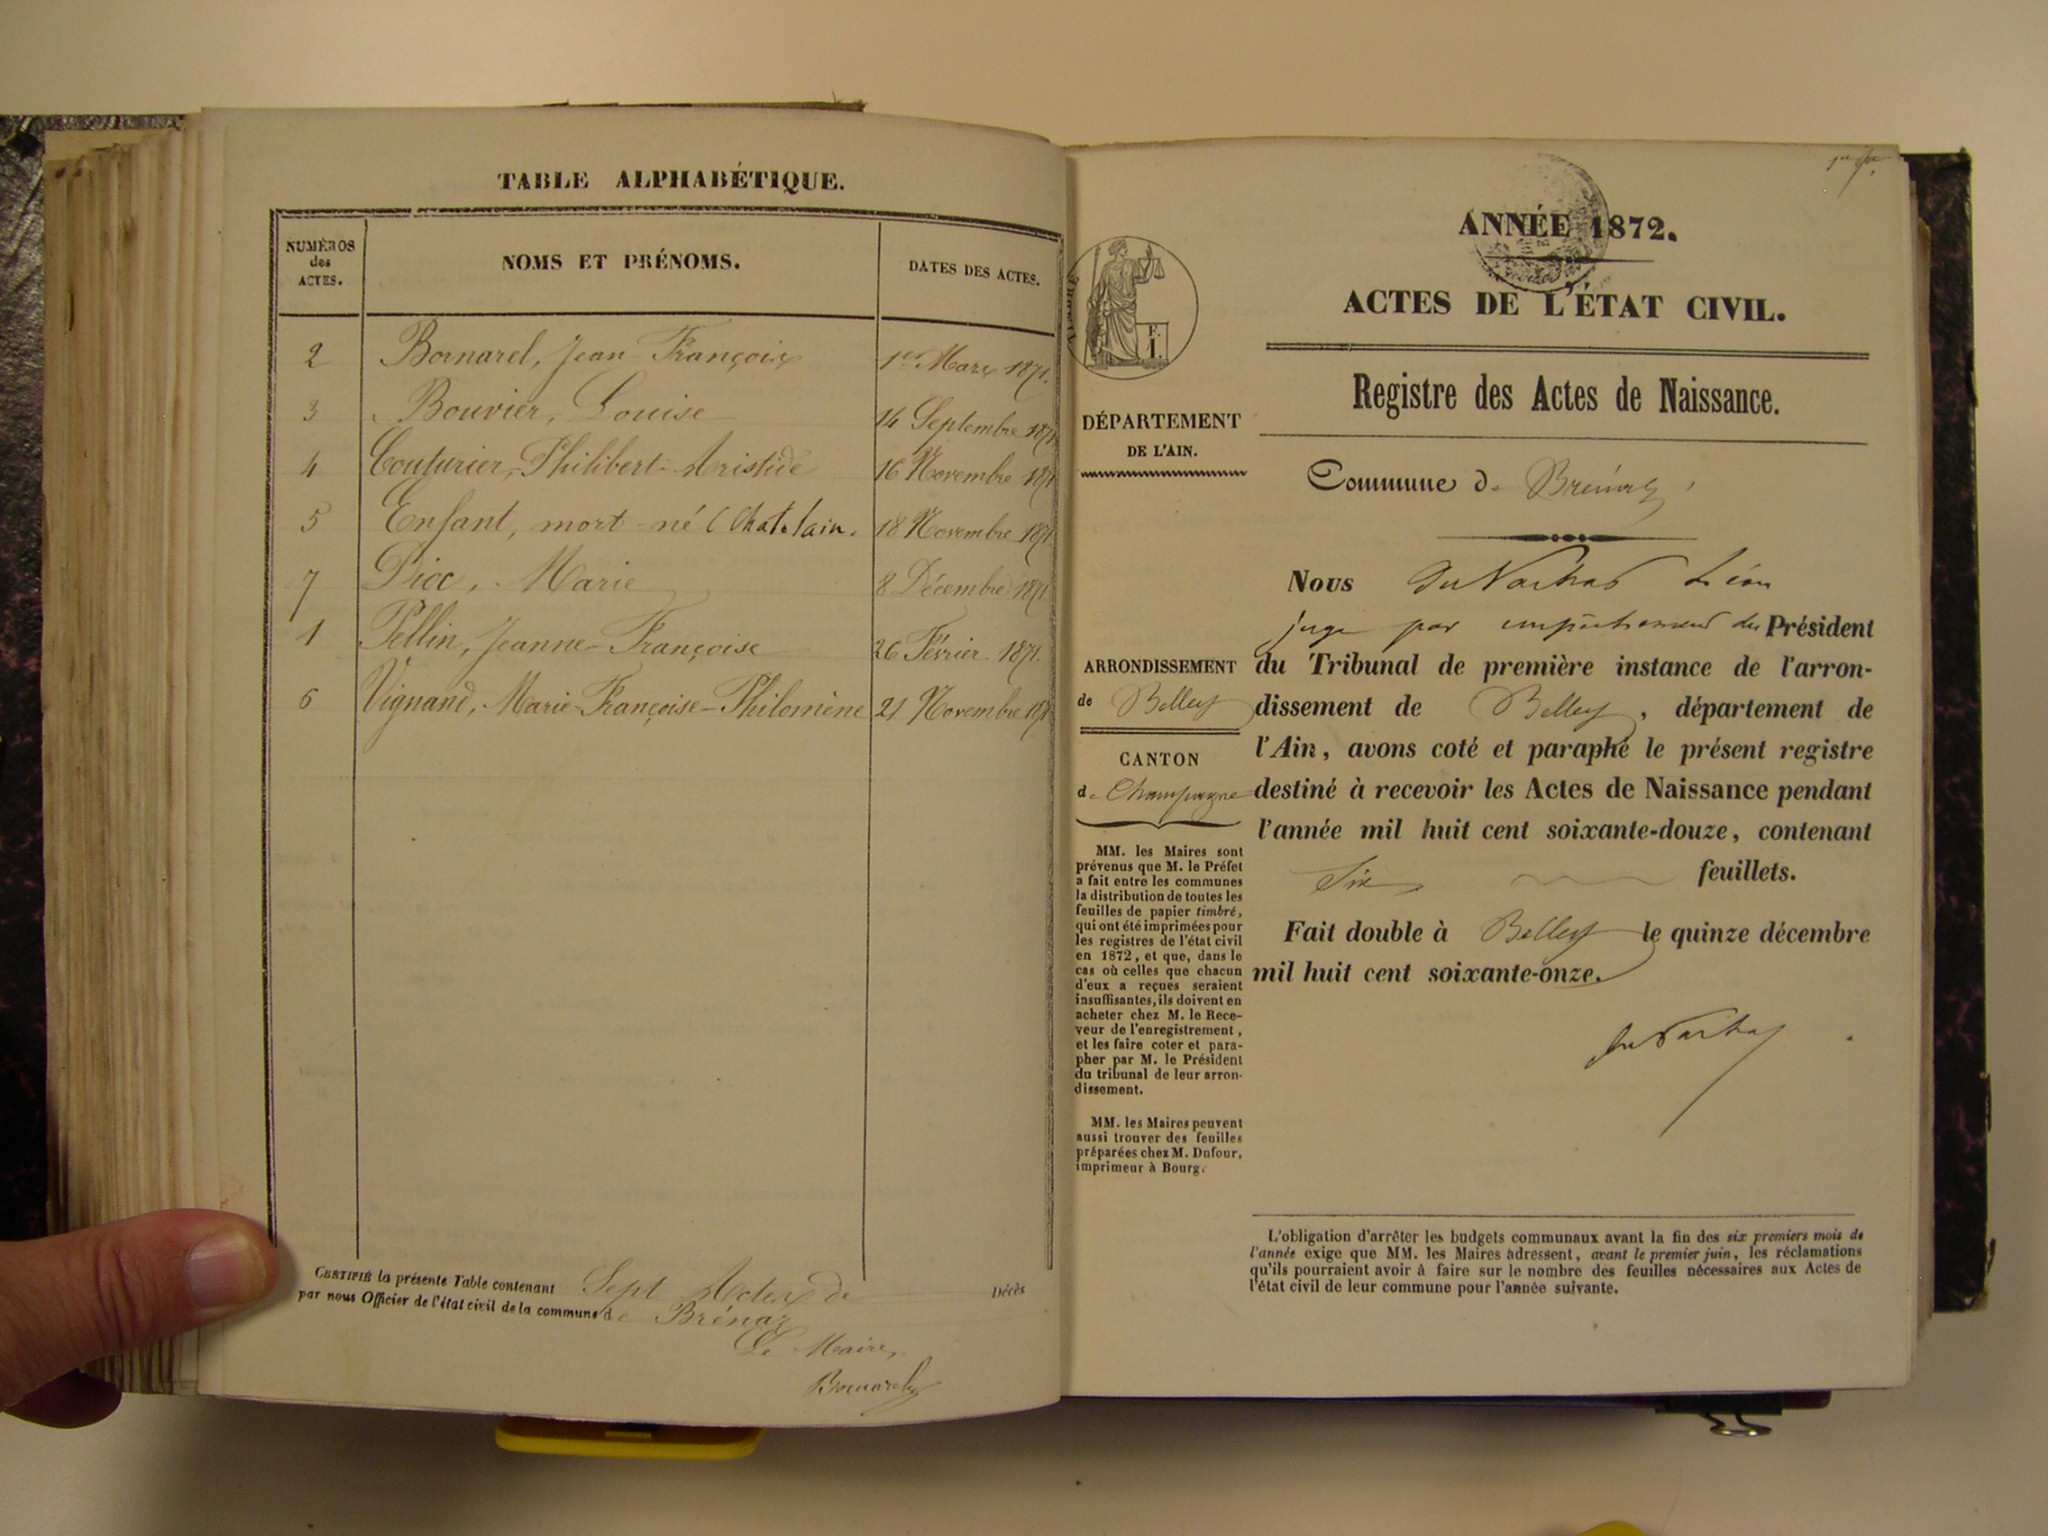 TABLE ALPHABÉTIQUE.
NUMÉROS des ACTES. NOMS ET PRÉNOMS. DATES DES ACTES.
2 Bornarel, Jean-François 1er Mars 1871.
3 Bouvier, Louise 14 Septembre 1871
4 Couturier, Philibert-Aristide 16 Novembre 1871
5 Enfant, mort-né (Chatelain. 18 Novembre 1871
7 Pioc, Marie 8 Décembre 1871
1 Pellin, Jeanne-Françoise 26 Février 1871.
6 Vignand, Marie-Françoise-Philomène 21 Novembre 1871
CERTIFIÉ la présente Table contenant Sept Actes de Décès
par nous Officier de l'état civil de la commune de Brénaz
Le Maire,
Bornarel
ANNÉE 1872.
ACTES DE L'ÉTAT CIVIL.
Registre des Actes de Naissance.
F.
I.
DÉPARTEMENT
DE L'AIN.
ARRONDISSEMENT
de Belley
CANTON
de Champagne
MM. les Maires sont
prévenus que M. le Préfet
a fait entre les communes
la distribution de toutes les
feuilles de papier timbré,
qui ont été imprimées pour
les registres de l'état civil
en 1872, et que, dans le
cas où celles que chacun
d'eux a reçues seraient
insuffisantes, ils doivent en
acheter chez M. le Rece-
veur de l'enregistrement,
et les faire coter et para-
pher par M. le Président
du tribunal de leur arron-
dissement.
MM. les Maires peuvent
aussi trouver des feuilles
préparées chez M. Dufour,
imprimeur à Bourg.
Commune de Brénaz
Nous Léon
juge par empêchement du Président
du Tribunal de première instance de l'arron-
dissement de Belley, département de
l'Ain, avons coté et paraphé le présent registre
destiné à recevoir les Actes de Naissance pendant
l'année mil huit cent soixante-douze, contenant
Six feuillets.
Fait double à Belley le quinze décembre
mil huit cent soixante-onze.
L'obligation d'arrêter les budgets communaux avant la fin des six premiers mois de
l'année exige que MM. les Maires adressent, avant le premier juin, les réclamations
qu'ils pourraient avoir à faire sur le nombre des feuilles nécessaires aux Actes de
l'état civil de leur commune pour l'année suivante.